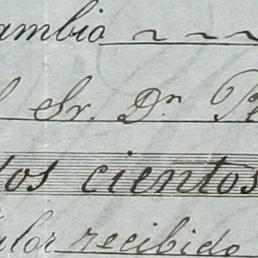 ambio
Sr. Dn
tos cientos
alor recibido